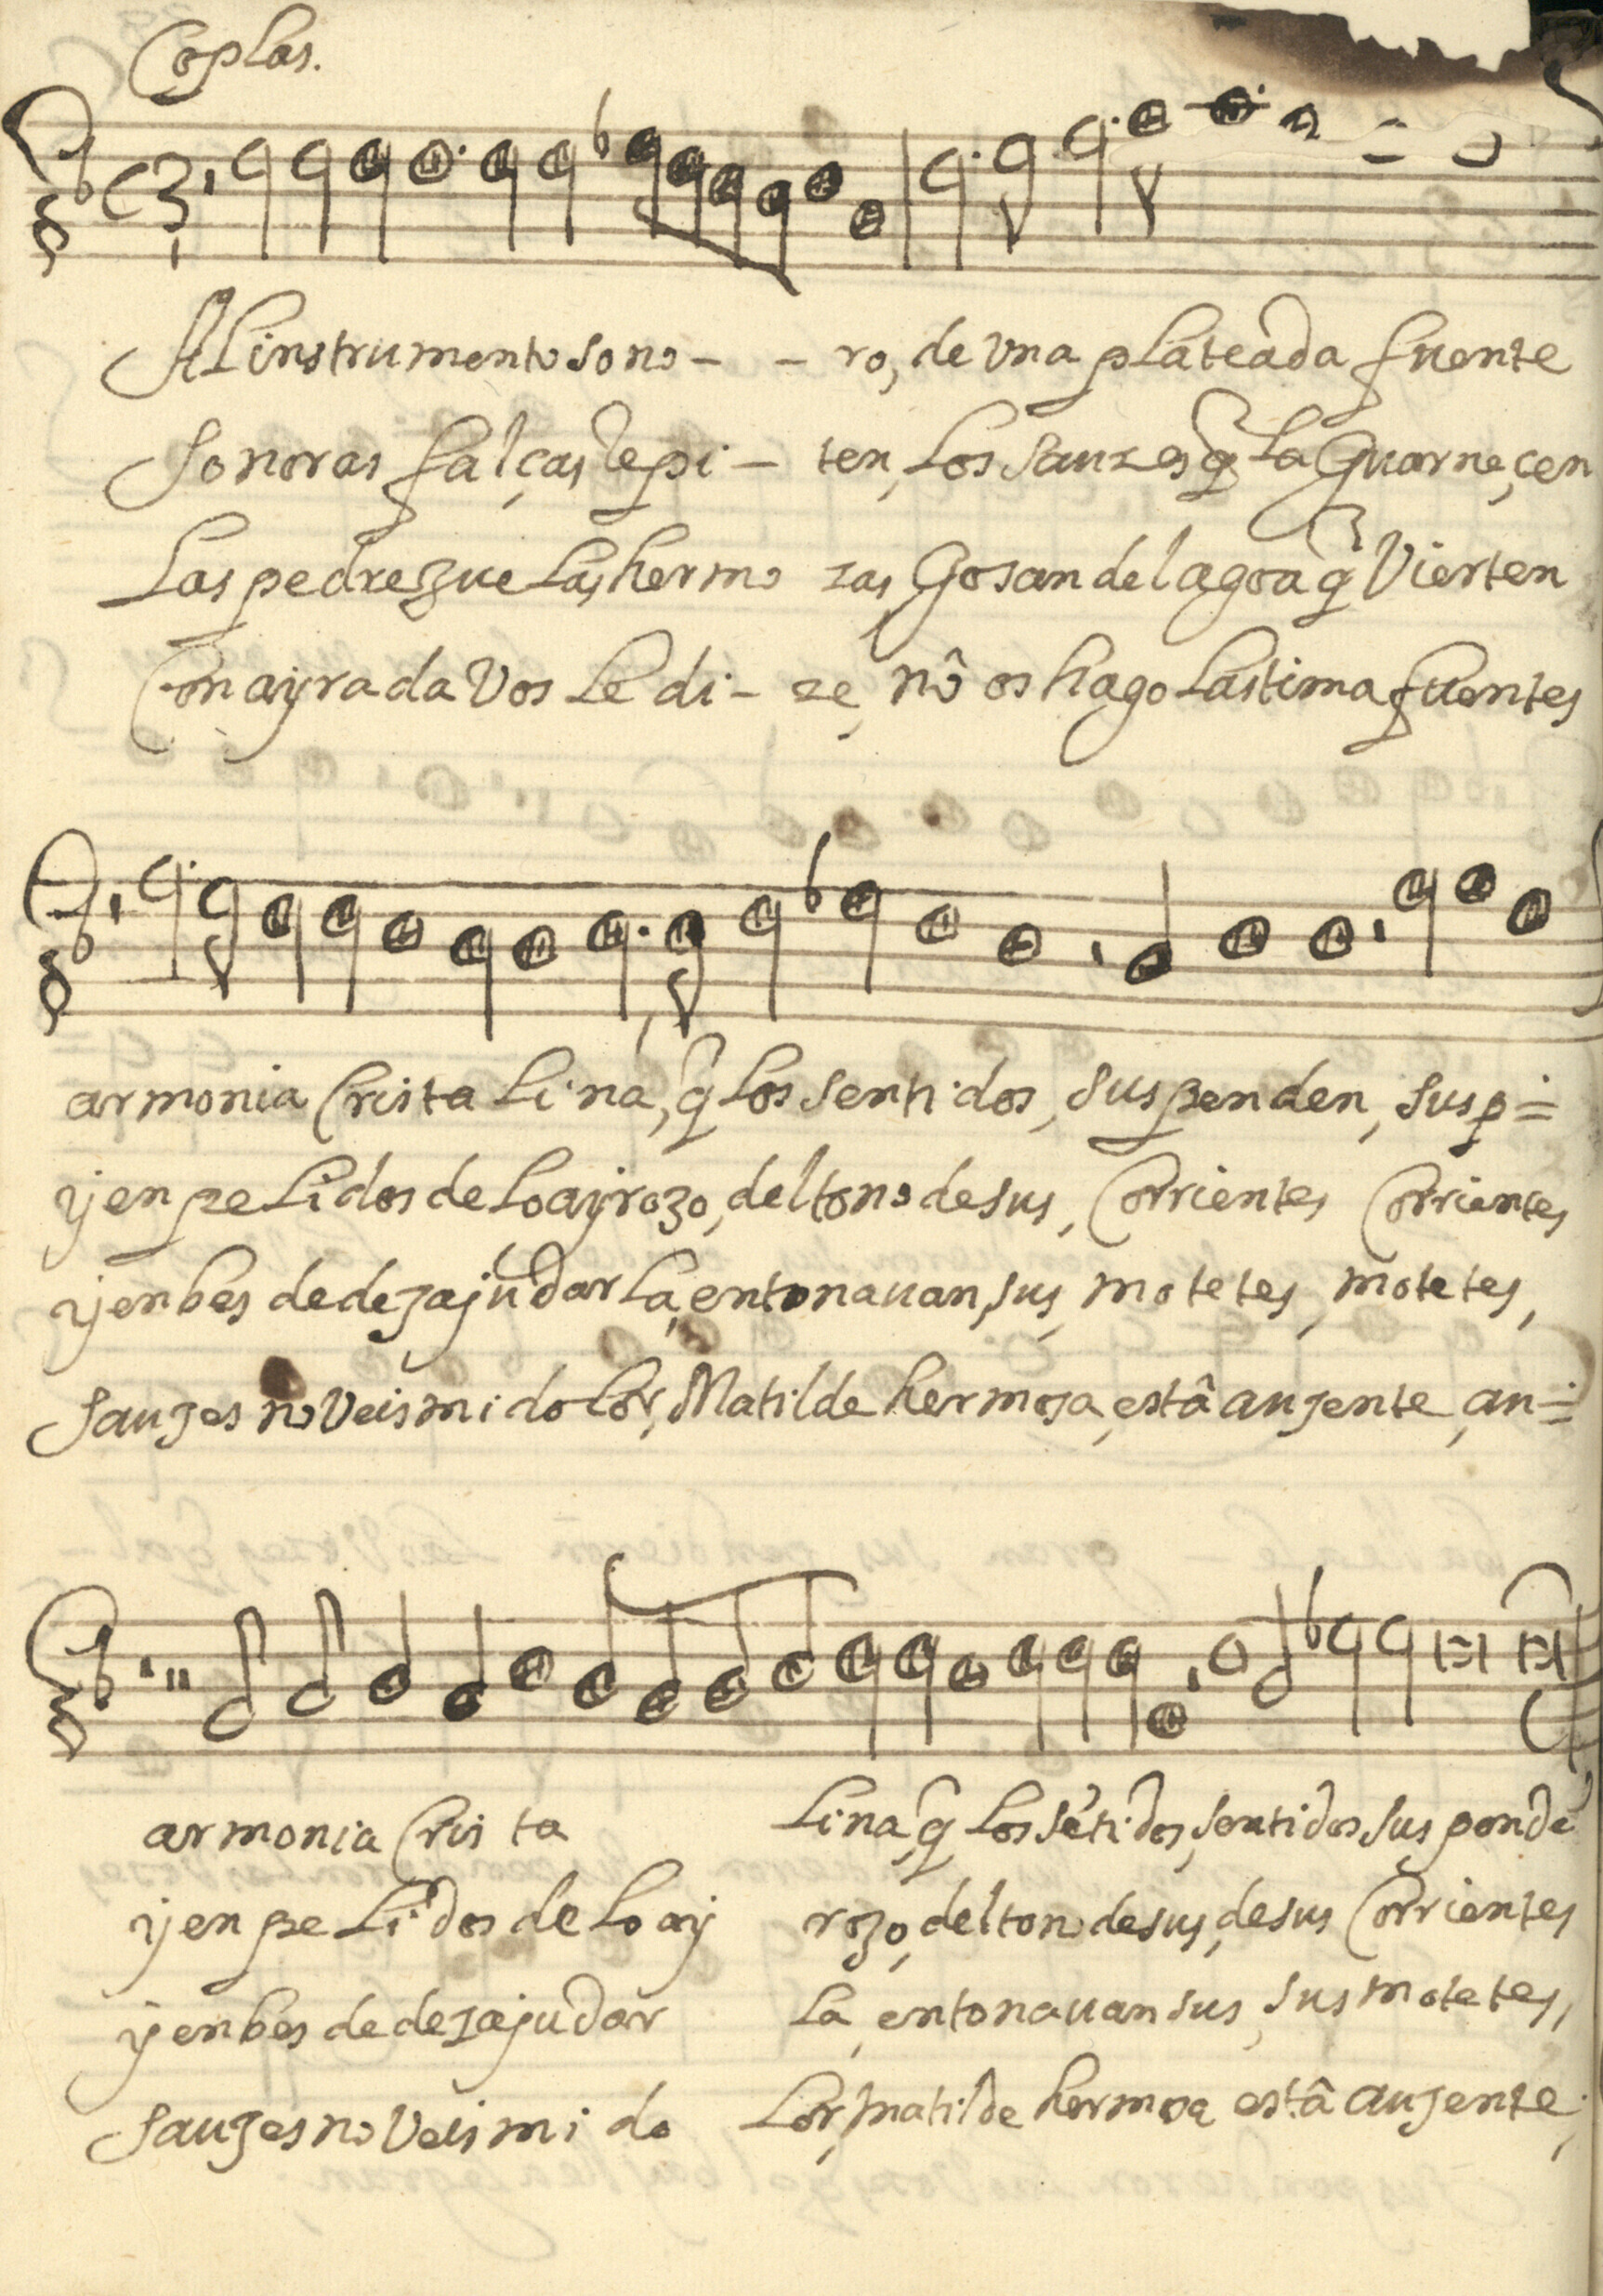 Coplas.
Al instrumento sono - - ro, de vna plateada fuente
sonoras falças repi - ten, los sauzes q̃ la Guarneçen
Las pedrezuelas hermo zas Gosan del agoa q̃ Vierten
Con ayrada Vos le di - ze, nô os hago lastima fuentes
armonia Cristalina, q̃ los sentidos, suspenden, susp=
y en pelidos de lo ayrozo, del tono de sus, Corrientes Corrientes
y en bes de dezajudarla, entonauan, sus, motetes, motetes,
sauzes no Veis mi dolor, Matilde hermoza, estâ auzente, au=
armonia Cris ta lina, q̃ los sẽtidos, sentidos suspendẽ
y en pelidos de lo ay rozo, del tono de sus, de sus Corrientes
y en bes de dezajudar la, entonauan sus, sus motetes,
sauzes no Veis mi do lor, matilde hermoza estâ auzente,